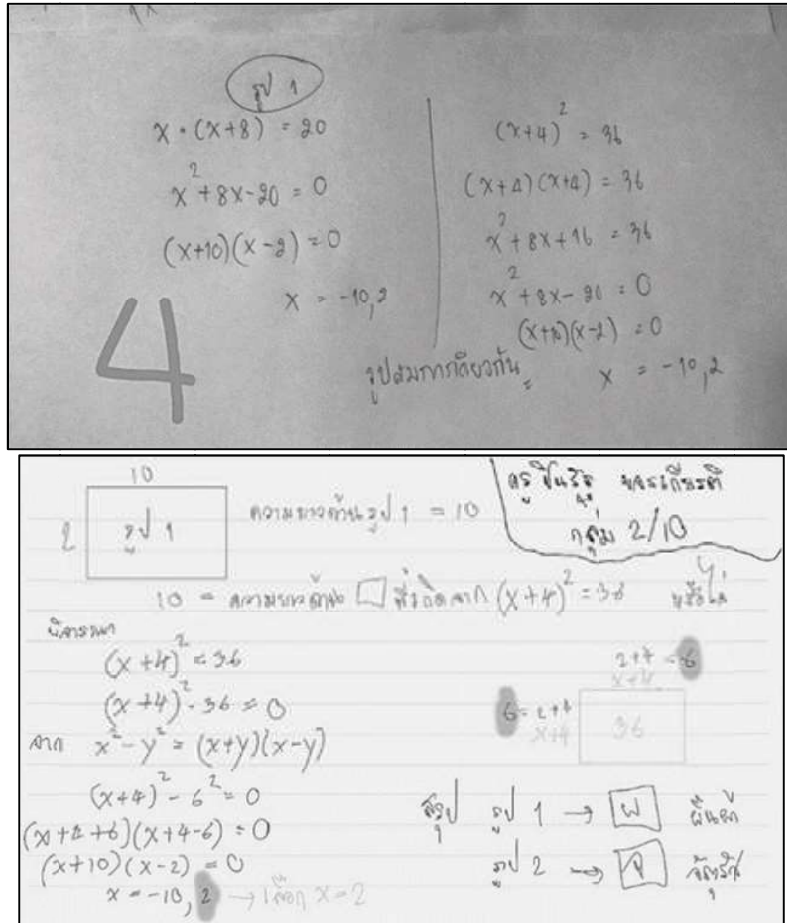 รูป 1
x · (x+8) = 20
x² + 8x - 20 = 0
(x+10)(x-2) = 0
x = -10, 2
4
(x+4)² = 36
(x+4)(x+4) = 36
x² + 8x + 16 = 36
x² + 8x - 20 = 0
(x+10)(x-2) = 0
รูปสมการเดียวกัน x = -10, 2
10
2
รูป 1
ความยาวด้านรูป 1 = 10
ครู
กลุ่ม 2/10
10 = ความยาวด้าน □ ที่เกิดจาก (x+4)² = 36 หรือไม่
พิจารณา
(x+4)² = 36
(x+4)² - 36 = 0
จาก x² - y² = (x+y)(x-y)
(x+4)² - 6² = 0
(x+4+6)(x+4-6) = 0
(x+10)(x-2) = 0
x = -10, 2 → เลือก x = 2
2+4 = 6
x+4
6 = 2+4
x+4
36
สรุป รูป 1 → ผ ผืนผ้า
รูป 2 → จ จัตุรัส